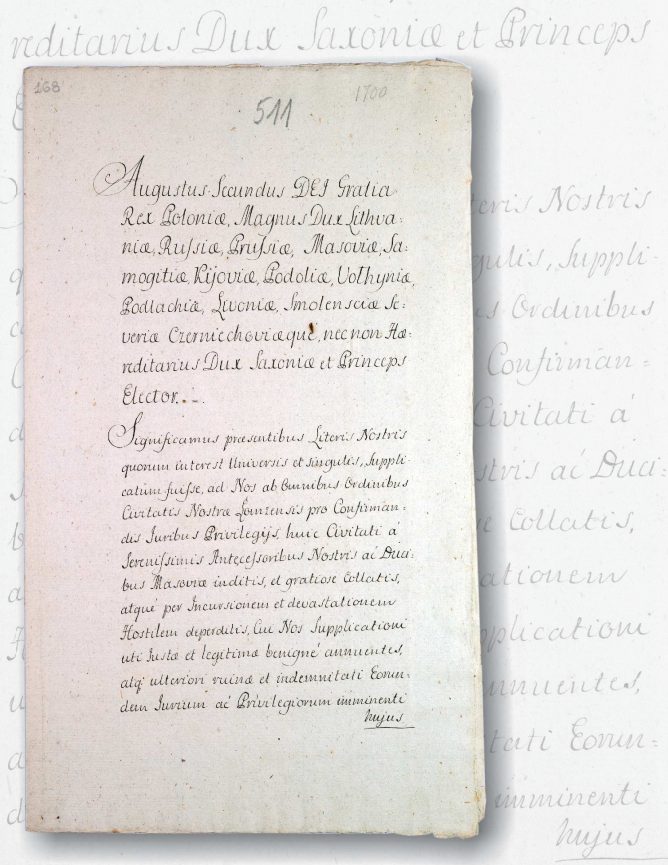 168
511
1700
Augustus Secundus DEI Gratia
Rex Poloniæ, Magnus Dux Lithva:
niæ, Russiæ, Prussiæ, Masoviæ, Sa:
mogitiæ, Kijoviæ, Podoliæ, Volhyniæ,
Podlachiæ, Livoniæ, Smolensciæ Se:
veriæ Czerniechoviæque, nec non Hæ:
reditarius Dux Saxoniæ et Princeps
Elector.
Significamus præsentibus Literis Nostris
quorum interest Universis et singulis, Suppli-
catum fuisse, ad Nos ab Omnibus Ordinibus
Civitatis Nostræ Lomzensis pro Confirman=
dis Juribus Privilegijs, huic Civitati à
Serenissimis Antecessoribus Nostris ac Duci:
bus Masoviæ inditis, et gratiose Collatis,
atque per Incursionem et devastationem
Hostilem deperditis, Cui Nos Supplicationi
uti Justæ et legitimæ benigné annuentes,
atq; ulteriori ruinæ et indemnitati Eorun-
dem Jurium ac Privilegiorum imminenti
hujus
reditarius Dux Saxoniæ et Princeps
eris Nostris
gulis, Suppli-
s Ordinibus
Confirman=
Civitati à
stris ac Duci:
Collatis,
ationem
pplicationi
nnuentes,
tati Eorun-
imminenti
hujus